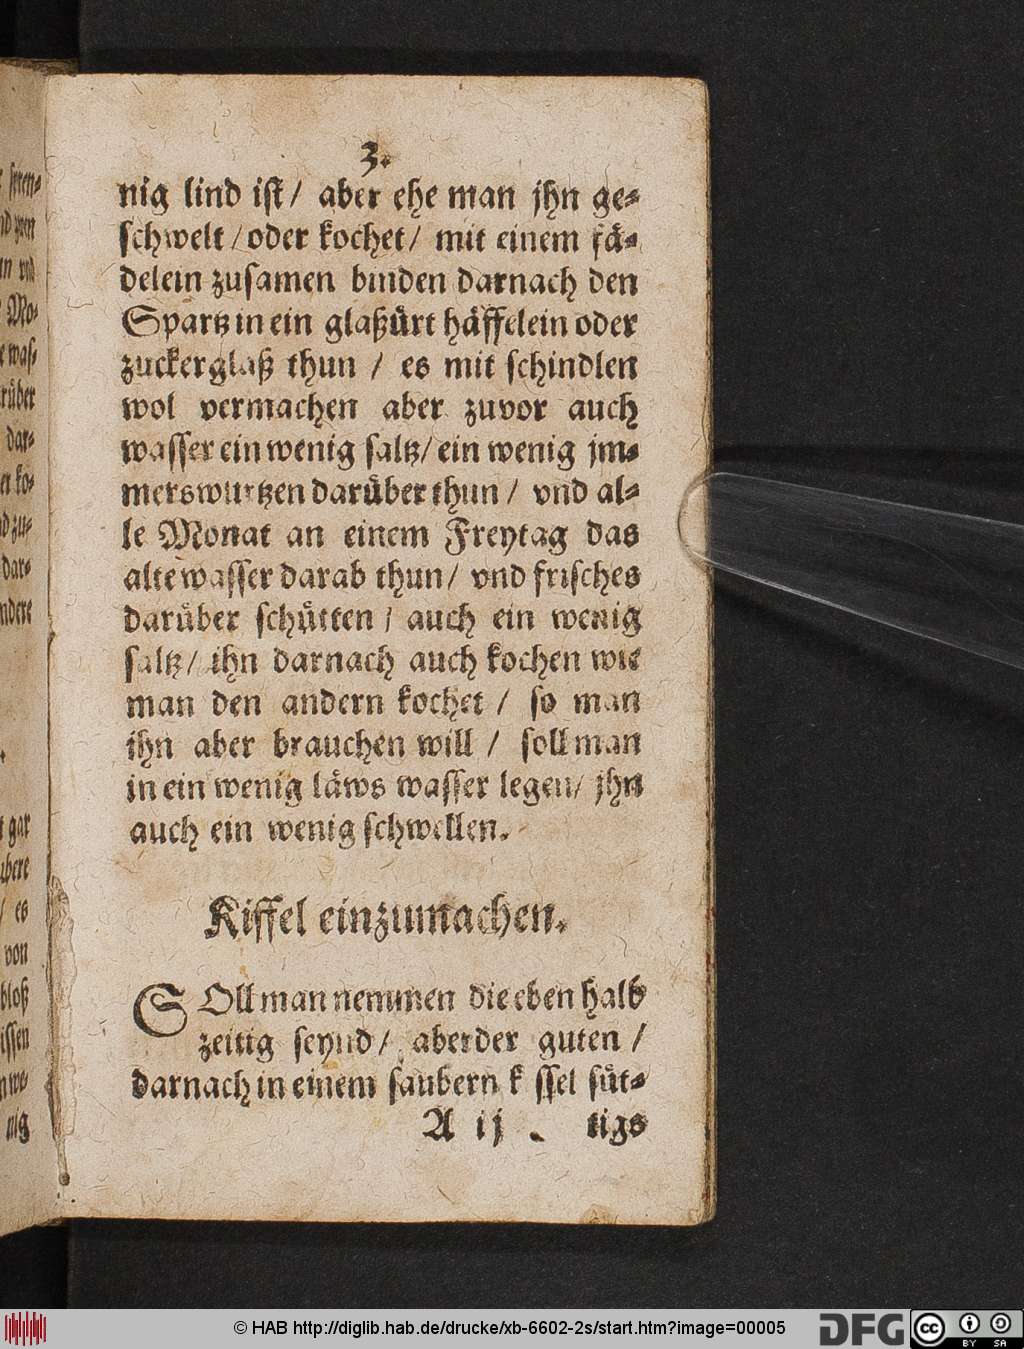 3.
nig lind iſt / aber ehe man jhn ge⸗
ſchwelt / oder kochet / mit einem faͤ⸗
delein zuſamen binden darnach den
Spartz in ein glaßuͤrt haͤffelein oder
zuckerglaß thun / es mit ſchindlen
wol vermachen aber zuvor auch
waſſer ein wenig ſaltz / ein wenig jm⸗
merswurtzen daruͤber thun / vnd al⸗
le Monat an einem Freytag das
alte waſſer darab thun / vnd friſches
daruͤber ſchuͤtten / auch ein wenig
ſaltz / ihn darnach auch kochen wie
man den andern kochet / ſo man
ihn aber brauchen will / ſoll man
in ein wenig laͤws waſſer legen / jhn
auch ein wenig ſchwellen.
Kiffel einzumachen.
SOll man nemmen die eben halb
zeitig ſeynd / aber der guten /
darnach in einem ſaubern k ſſel ſuͤt⸗
A ij . tigs
ſpren⸗
Mo⸗
waſ⸗
dar⸗
ko⸗
dar⸗
gar
es
von
bloß
we⸗
nig
© HAB http://diglib.hab.de/drucke/xb-6602-2s/start.htm?image=00005
DFG
cc
BY SA